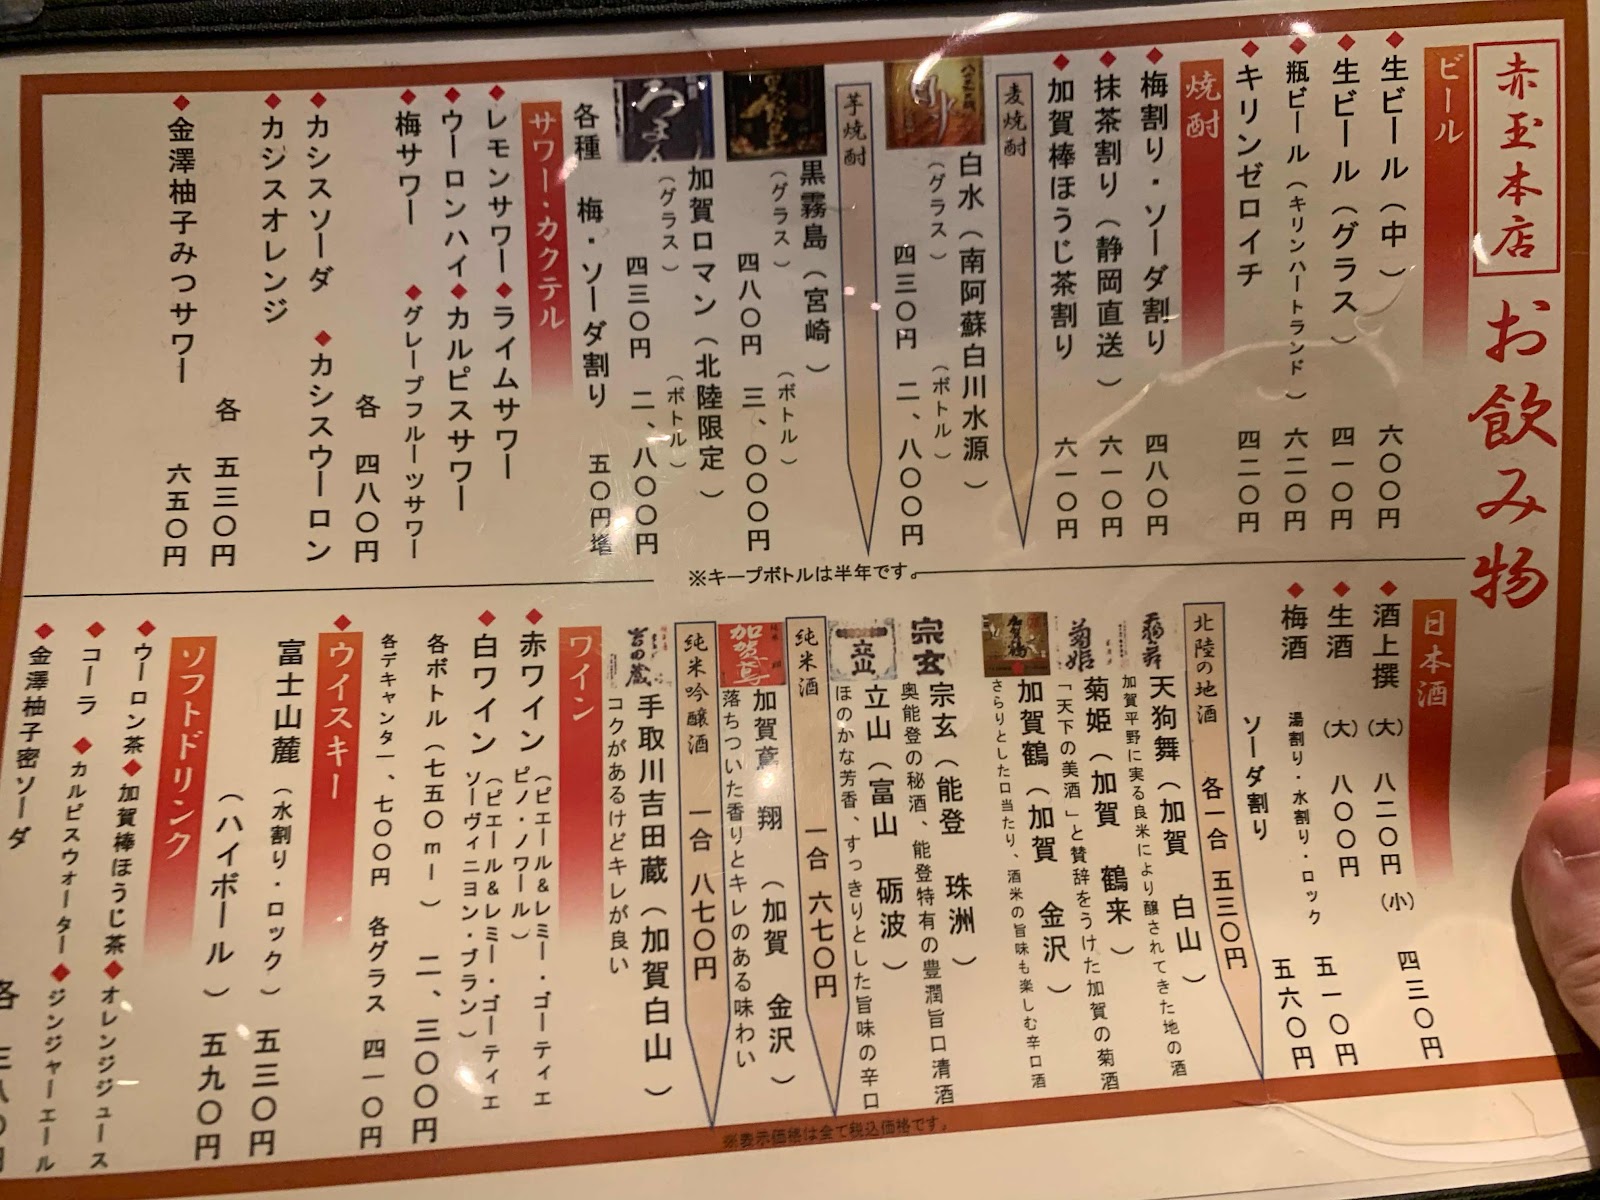 赤玉本店
お飲み物
ビール
◆生ビール（中） 六〇〇円
◆生ビール（グラス） 四一〇円
◆瓶ビール（キリンハートランド） 六二〇円
◆キリンゼロイチ 四二〇円
焼酎
◆梅割り・ソーダ割り 四八〇円
◆抹茶割り（静岡直送） 六一〇円
◆加賀棒ほうじ茶割り 六一〇円
麦焼酎
白水（南阿蘇白川水源）
（グラス） 四三〇円 （ボトル） 二、八〇〇円
芋焼酎
黒霧島（宮崎）
（グラス） 四八〇円 （ボトル） 三、〇〇〇円
加賀ロマン（北陸限定）
（グラス） 四三〇円 （ボトル） 二、八〇〇円
各種 梅・ソーダ割り 五〇円増
サワー・カクテル
◆レモンサワー◆ライムサワー
◆ウーロンハイ◆カルピスサワー
◆梅サワー ◆グレープフルーツサワー
各 四八〇円
◆カシスソーダ ◆カシスウーロン
◆カシスオレンジ
各 五三〇円
◆金澤柚子みつサワー 六五〇円
※キープボトルは半年です。
日本酒
◆酒上撰 （大） 八二〇円 （小） 四三〇円
◆生酒 （大） 八〇〇円 五一〇円
◆梅酒 湯割り・水割り・ロック 五六〇円
ソーダ割り
北陸の地酒 各一合 五三〇円
天狗舞
天狗舞（加賀 白山）
加賀平野に実る良米により醸されてきた地の酒
菊姫
菊姫（加賀 鶴来）
「天下の美酒」と賛辞をうけた加賀の菊酒
加賀鶴
加賀鶴（加賀 金沢）
さらりとした口当たり、酒米の旨味も楽しむ辛口酒
宗玄
宗玄（能登 珠洲）
奥能登の秘酒、能登特有の豊潤旨口清酒
立山
立山（富山 砺波）
ほのかな芳香、すっきりとした旨味の辛口
純米酒 一合 六七〇円
加賀鳶
加賀鳶 翔（加賀 金沢）
落ちついた香りとキレのある味わい
純米吟醸酒 一合 八七〇円
吉田蔵
手取川吉田蔵（加賀白山）
コクがあるけどキレが良い
ワイン
◆赤ワイン（ピエール＆レミー・ゴーティエ
ピノ・ノワール）
◆白ワイン（ピエール＆レミー・ゴーティエ
ソーヴィニヨン・ブラン）
各ボトル（七五〇ml） 二、三〇〇円
各デキャンタ一、七〇〇円 各グラス 四一〇円
◆ウイスキー
富士山麓（水割り・ロック） 五三〇円
（ハイボール） 五九〇円
ソフトドリンク
◆ウーロン茶◆加賀棒ほうじ茶◆オレンジジュース
◆コーラ ◆カルピスウォーター◆ジンジャーエール
◆金澤柚子密ソーダ
各
※表示価格は全て税込価格です。